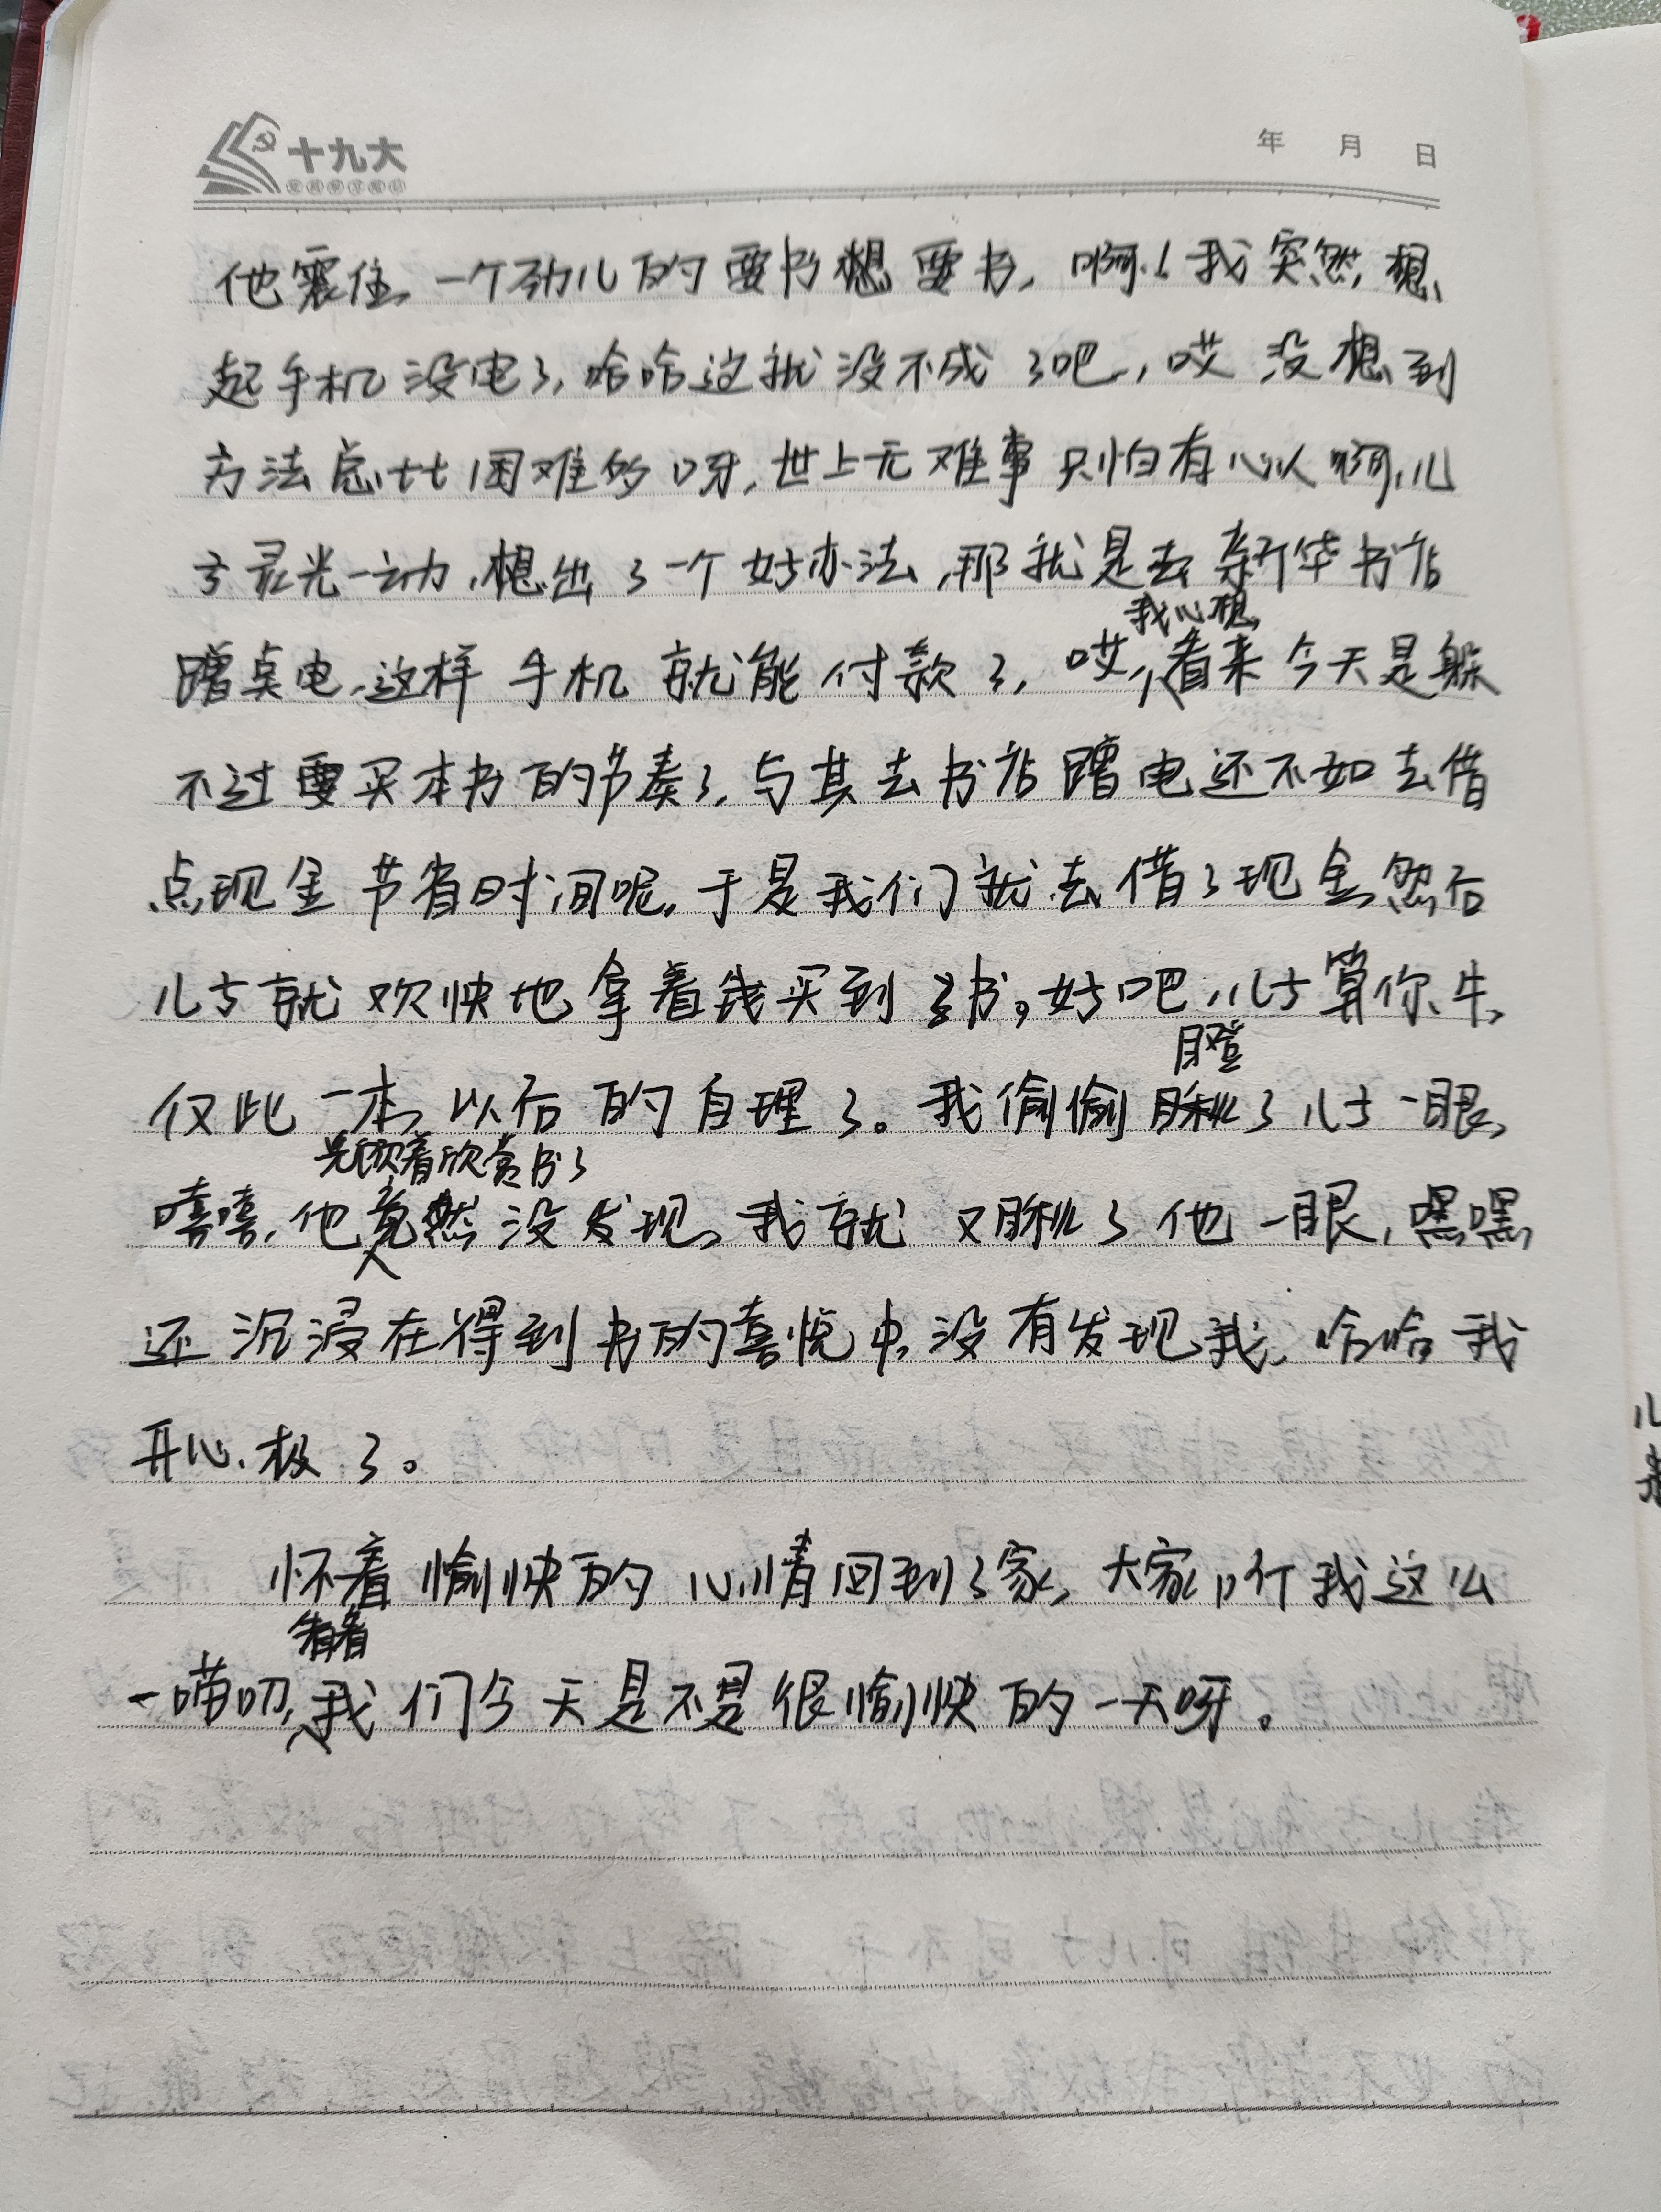 十九大
年 月 日
他震住,一个劲儿的要书想要书,啊!我突然想
起手机没电了,哈哈这就没不成了吧,哎没想到
方法总比困难多呀,世上无难事只怕有心人啊,儿
子灵光一动,想出了一个好办法,那就是去新华书店
我心想
蹭点电,这样手机就能付款了,哎,看来今天是躲
不过要买本书的节奏了,与其去书店蹭电还不如去借
点现金节省时间呢,于是我们就去借了现金,然后
儿子就欢快地拿着钱买到了书。好吧,儿子算你牛,
瞪
仅此一本,以后的自理了。我偷偷瞅了儿子一眼,
光顾着欣赏书了
嘻嘻,他竟然没发现,我就又瞅了他一眼,嘿嘿
还沉浸在得到书的喜悦中,没有发现我,哈哈我
开心极了。
怀着愉快的心情回到了家,大家听我这么
一唠叨,我们今天是不是很愉快的一天呀。
儿